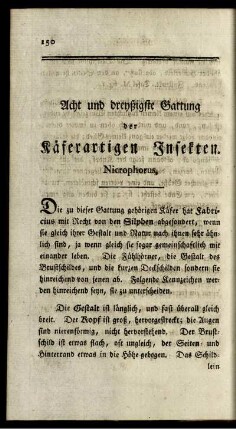 150
Acht und dreyßigste Gattung
der
Käferartigen Insekten.
Nicrophorus.
Die zu dieser Gattung gehörigen Käfer hat Fabri-
cius mit Recht von den Silphen abgesondert, wenn
sie gleich ihrer Gestalt und Natur nach ihnen sehr ähn-
lich sind, ja wenn gleich sie sogar gemeinschaftlich mit
einander leben. Die Fühlhörner, die Gestalt des
Brustschildes, und die kurzen Deckschilden sondern sie
hinreichend von jenen ab. Folgende Kennzeichen wer-
den hinreichend seyn, sie zu unterscheiden.
Die Gestalt ist länglich, und fast überall gleich
breit. Der Kopf ist groß, hervorgestreckt; die Augen
sind nierenförmig, nicht hervorstehend. Der Brust-
schild ist etwas flach, oft ungleich, der Seiten- und
Hinterrand etwas in die Höhe gebogen. Das Schild-
lein